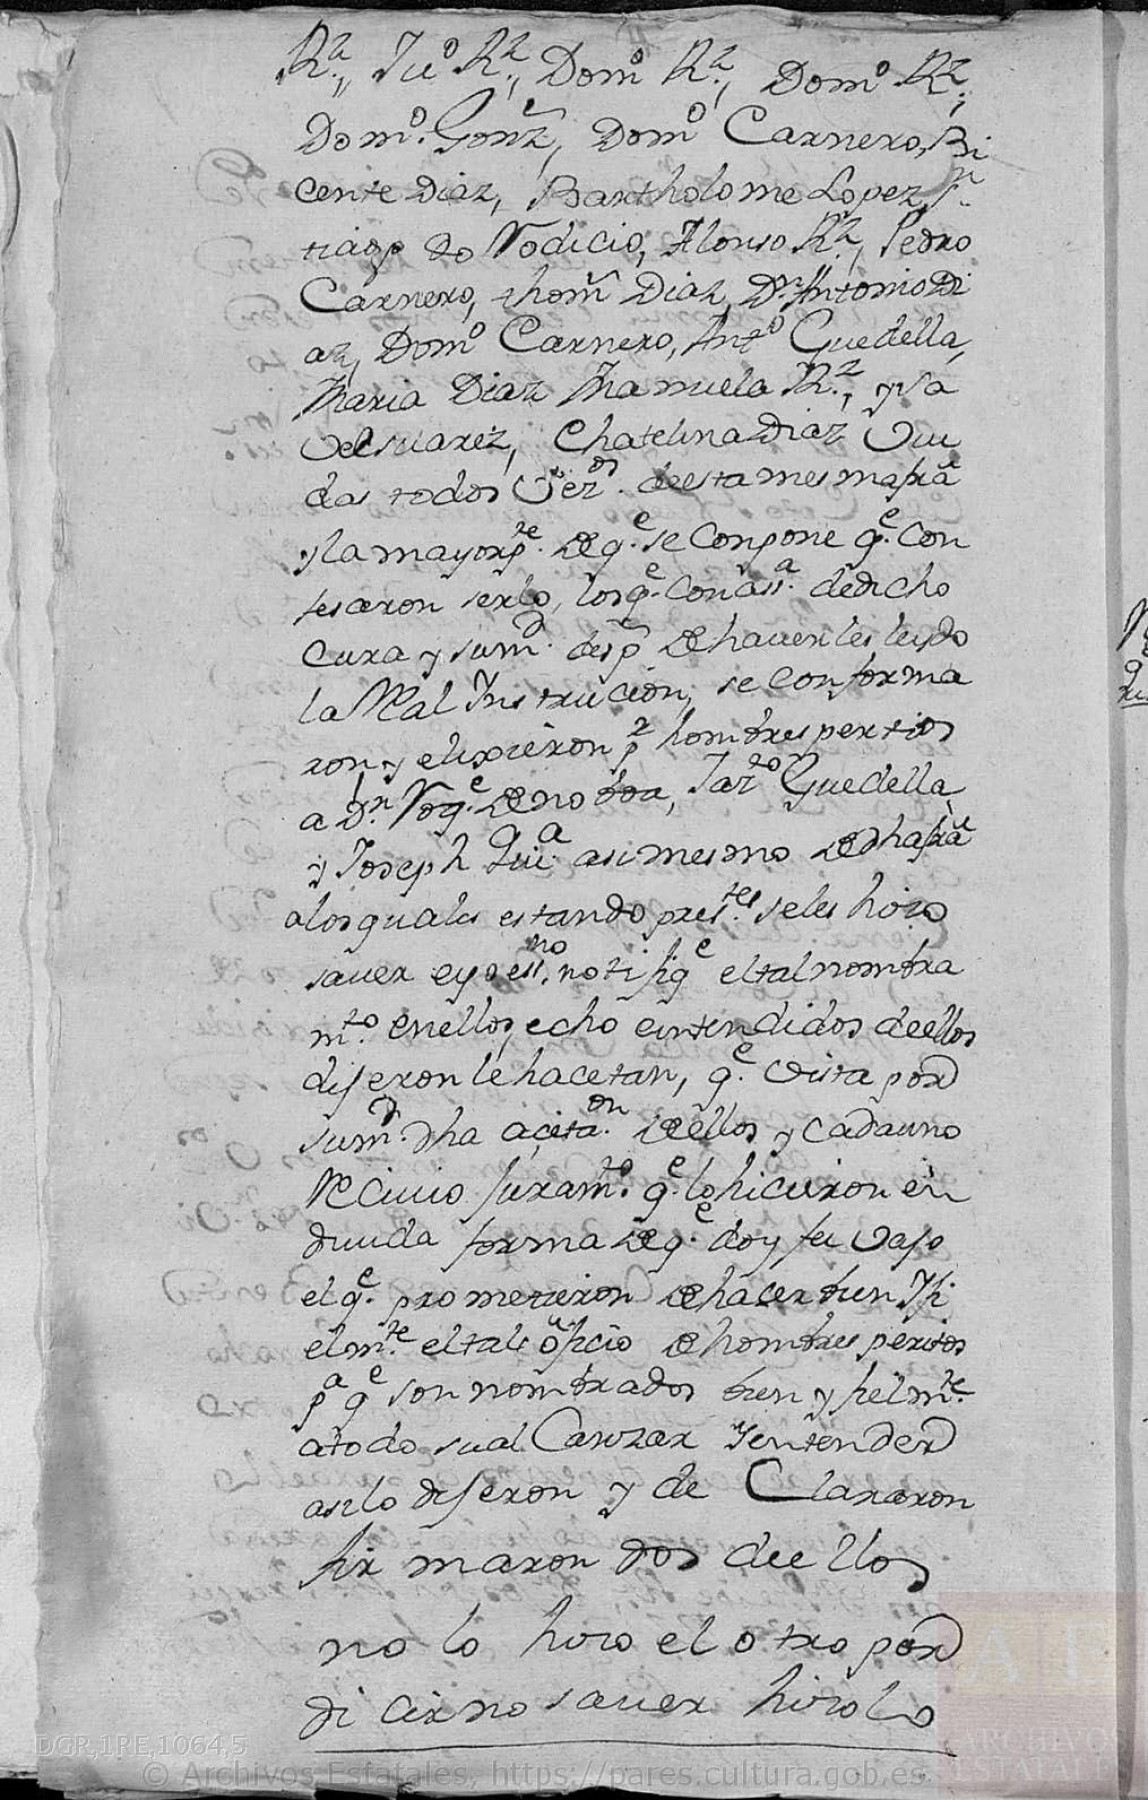 Rz., Juo Rz., Domo Rz., Domo Rz.,
Domo. Gonz, Domo Carnero, Bi
cente Diaz, Bartholome Lopez, Sn
tiago do Vodicio, Alonso Rz., Pedro
Carnero, thom Diaz, Dn Antonio Di
az, Domo Carnero, Anto Guedella,
Maria Diaz Manuela Rz., y Ysa
vel suarez, Chatelina Diaz Viu
das todos Vezos. de esta mesma fra
y la mayor pte. de qe. se Conpone qe. Con
fesaron serlo, los qe. Con assa. de dicho
Cura y sumd. desp de haverles leydo
la Real Ynstrucion, se Conforma
ron y elixieron pr hombres peritos
a Dn Roqe. de no boa, Jazto Guedella
y Joseph Guia. asimesmo de dha fra
a los quales estando prestes. seles hizo
saver e yo essno. notifiqe el tal nombra
mto. en ellos, echo e intendidos de ellos
dijeron le hacetan, qe. vista por
sumd. dha acetaon. de ellos y cada uno
Recivio Juramto. qe. lo hicieron en
devida forma de qe. doy fee vajo
el qe. prometieron de hacer bien Yfi
elmte. el tal oficio de hombres peritos
pa qe son nombrados bien y fielmte.
a todo su al Canzar Yentender
asilo dijeron y de Clararon
fir maron dos de ellos
no lo hizo el otro por
di cir no saver hizolo
DGR,1RE,1064,5
© Archivos Estatales, https://pares.cultura.gob.es
AE
ARCHIVOS
ESTATALES